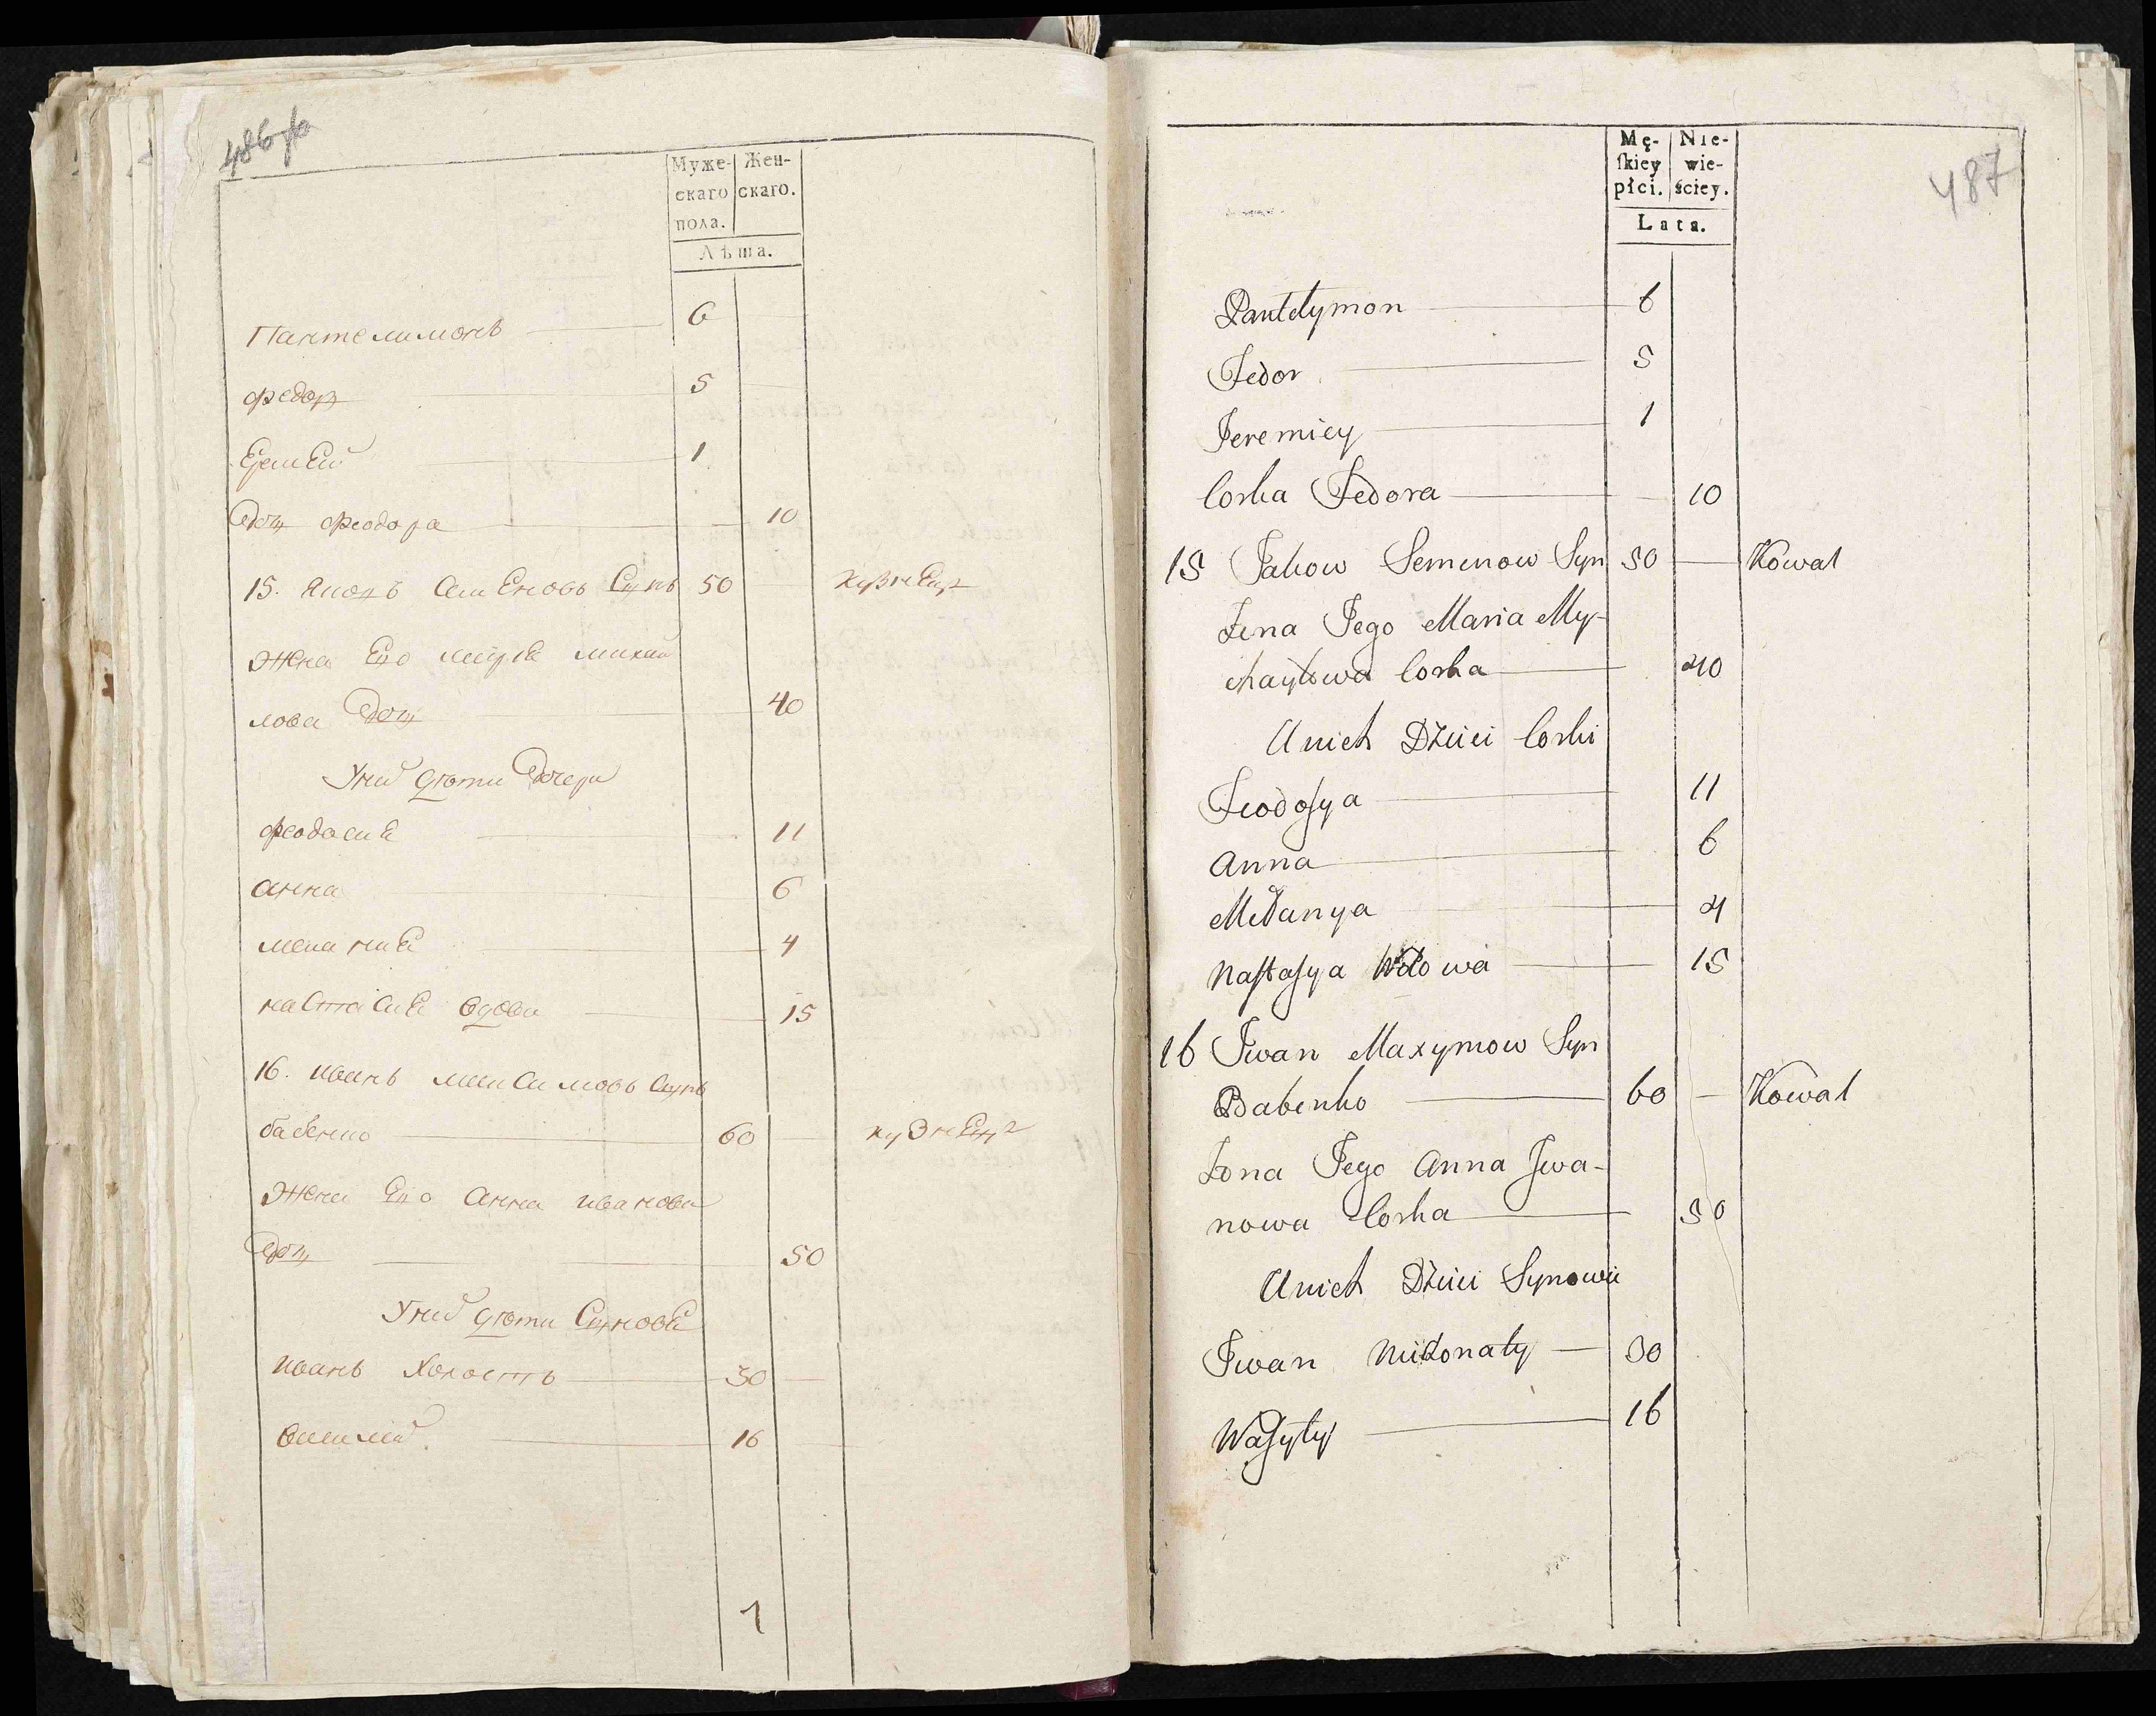 486 об
Муже- Жен-
скаго скаго.
пола.
Лѣта.
Пантелимонъ 6
Федор 5
Еремей 1
Доч Феодора 10
15. Яковъ Семеновъ Сынъ 50 кузнец
Жена Его марья михаи
лова Доч 40
У них дѣти Дочери
Феодосия 11
Анна 6
мелания 4
настасия вдова 15
16. иванъ максимовъ Сынъ
бабенко 60 кузнец
Жена Его Анна иванова
Доч 50
У них дѣти Сыновья
иванъ Холостъ 30
василий 16
7
487
Mę- Nie-
skiey wie-
płci. ściey.
Lata.
Pantełymon 6
Fedor 5
Jeremiey 1
Corka Fedora 10
15 Jakow Semenow Syn 50 — Kowal
Żena Jego Maria My-
chayłowa Corka 40
U nich Dzieci Corki
Feodosya 11
Anna 6
Mełanya 4
Nastasya Wdowa 15
16 Iwan Maxymow Syn
Babenko 60 — Kowal
Żona Jego Anna Iwa-
nowa Corka 50
U nich Dzieci Synowie
Iwan Niżonaty 30
Wasyły 16